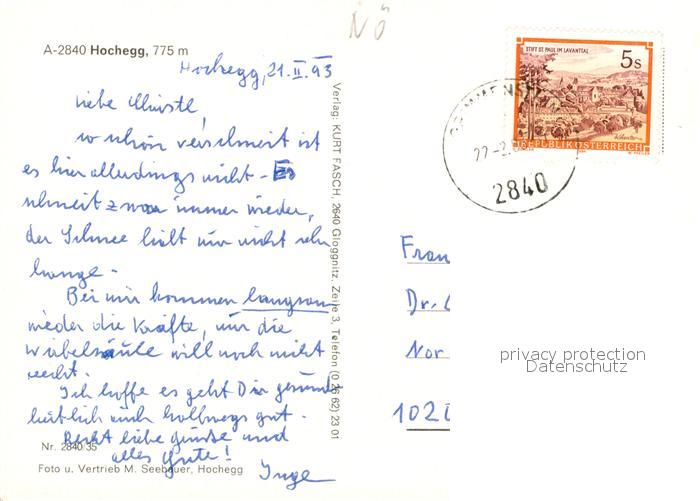 NÖ
A-2840 Hochegg, 775 m
Hochegg, 21.II.93
liebe
so schön verschneit ist
es hier allerdings nicht - Es
schneit zwar immer wieder,
der Schnee hält nur nicht sehr
lange.
Bei mir kommen langsam
wieder die Kräfte, nur die
Wirbelsäule will noch nicht
recht.
Ich hoffe es geht Dir gesund-
heitlich auch halbwegs gut.
Recht liebe Grüsse und
alles Gute!
Inge
Nr. 2840/35
Foto u. Vertrieb M. Seebauer, Hochegg
Verlag: KURT FASCH, 2640 Gloggnitz, Zeile 3, Telefon (0 26 62) 23 01
STIFT ST. PAUL IM LAVANTTAL
5 S
REPUBLIK ÖSTERREICH
2840
Frau
Dr.
Nor
102
privacy protection
Datenschutz